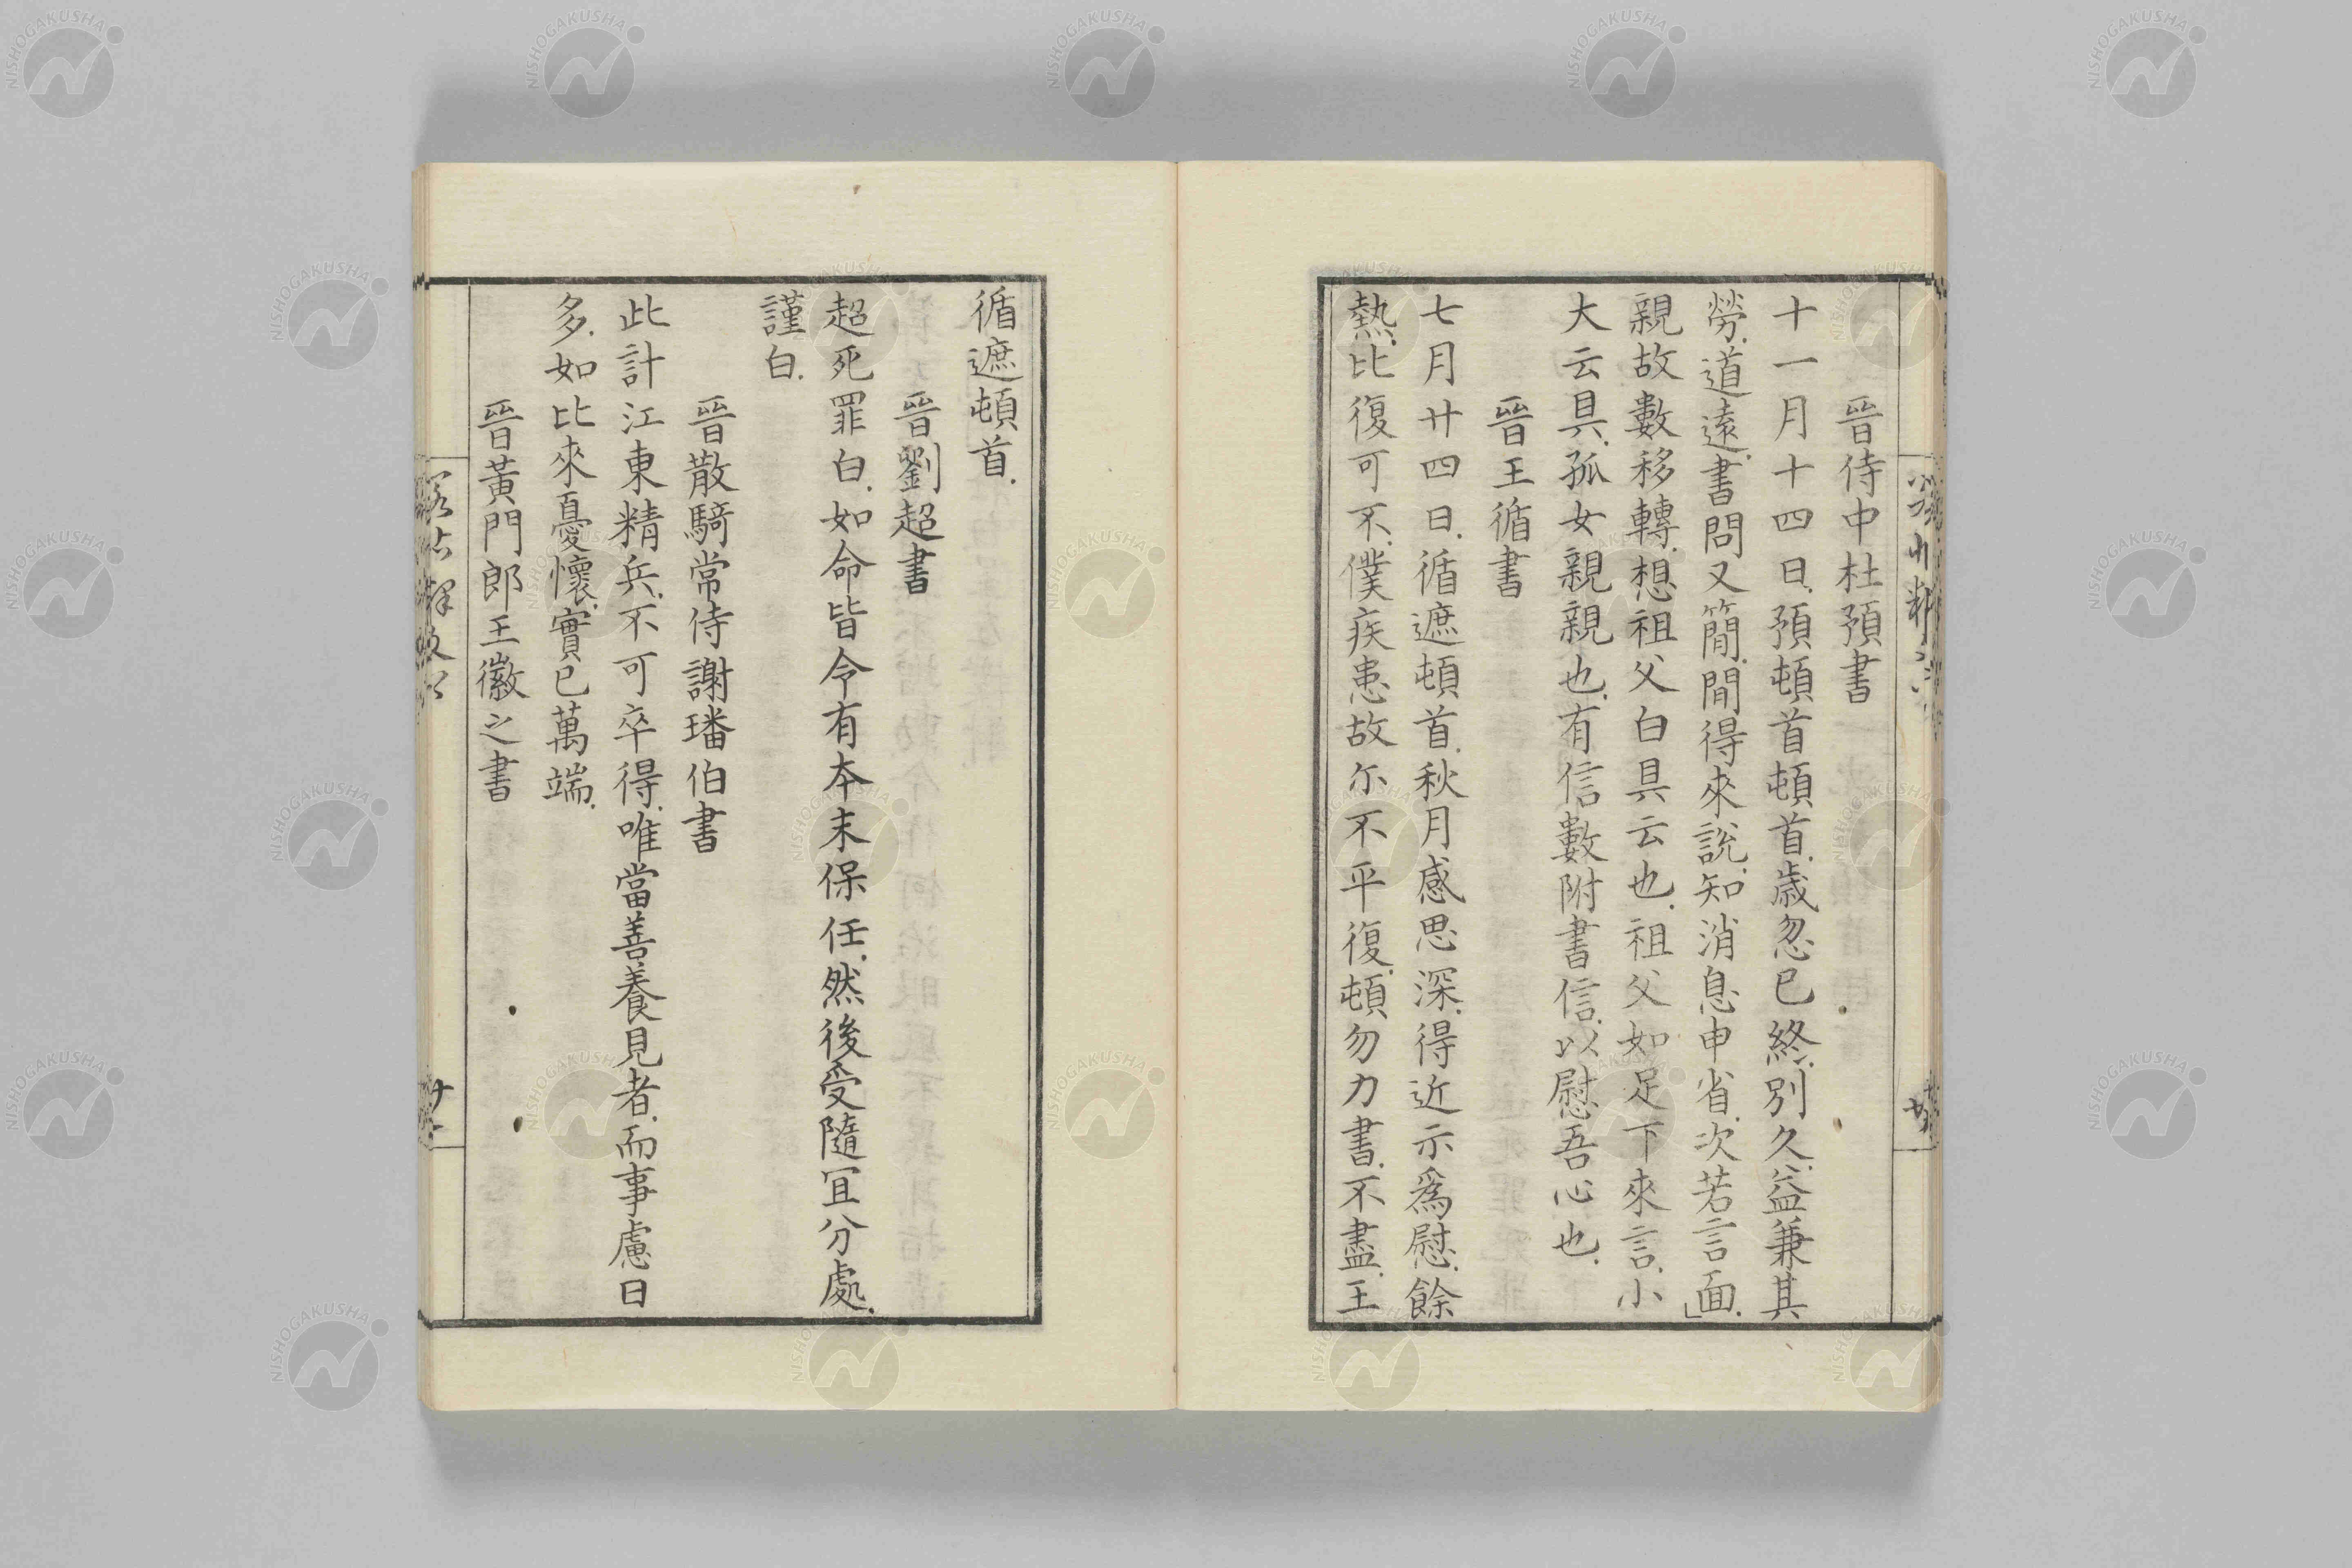 晉侍中杜預書
十一月十四日.預頓首頓首.歳忽已終.別久.益兼其
勞.道遠.書問又簡.間得來説.知消息申省.次若言面.」
親故數移轉.想祖父白具云也.祖父如足下來言.小
大云具.孤女親親也.有信數附書信.以慰吾心也.
晉王循書
七月廿四日.循遮頓首.秋月感思深.得近示爲慰.餘
熱.比復可不.僕疾患故尓不平復.頓勿力書.不盡.王
循遮頓首.
晉劉超書
超死罪白.如命皆令有本末保任.然後受隨宜分處.
謹白.
晉散騎常侍謝璠伯書
此計江東精兵.不可卒得.唯當善養見者.而事慮日
多.如比來憂懷.實已萬端.
晉黃門郎王徽之書
NISHOGAKUSHA